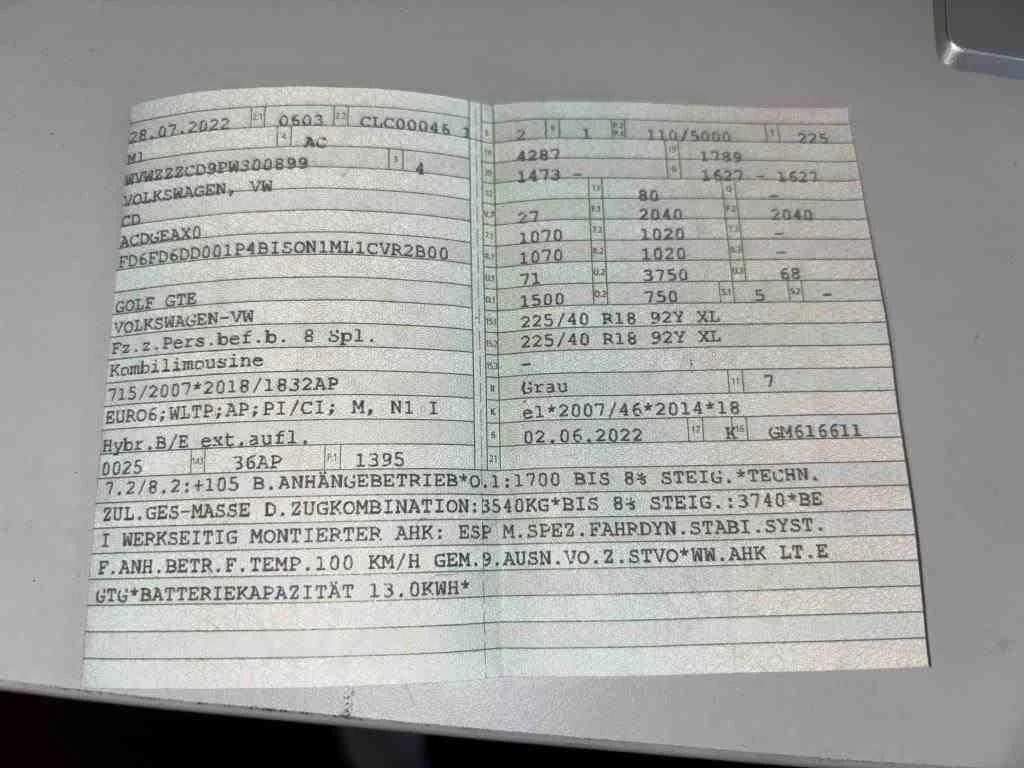 28.07.2022 2.1 0603 2.2 CLC00046 1
M1 4 AC
WVWZZZCD9PW300899 3 4
VOLKSWAGEN, VW
CD
ACDGEAX0
FD6FD6DD001P4BISON1ML1CVR2B00
GOLF GTE
VOLKSWAGEN-VW
Fz.z.Pers.bef.b. 8 Spl.
Kombilimousine
715/2007*2018/1832AP
EURO6;WLTP;AP;PI/CI; M, N1 I
Hybr.B/E ext.aufl.
0025 14.1 36AP P.1 1395
L 2 9 1 P.2 P.4 110/5000 T 225
18 4287 19 1789
20 1473 - G 1627 - 1627
12 13 80 Q -
V.7 27 F.1 2040 F.2 2040
7.1 1070 7.2 1020 7.3 -
8.1 1070 8.2 1020 8.3 -
U.1 71 U.2 3750 U.3 68
O.1 1500 O.2 750 S.1 5 S.2 -
15.1 225/40 R18 92Y XL
15.2 225/40 R18 92Y XL
15.3 -
R Grau 11 7
K e1*2007/46*2014*18
6 02.06.2022 17 K 16 GM616611
21
7.2/8.2:+105 B.ANHÄNGEBETRIEB*O.1:1700 BIS 8% STEIG.*TECHN.
ZUL.GES-MASSE D.ZUGKOMBINATION:3540KG*BIS 8% STEIG.:3740*BE
I WERKSEITIG MONTIERTER AHK: ESP M.SPEZ.FAHRDYN.STABI.SYST.
F.ANH.BETR.F.TEMP.100 KM/H GEM.9.AUSN.VO.Z.STVO*WW.AHK LT.E
GTG*BATTERIEKAPAZITÄT 13.0KWH*